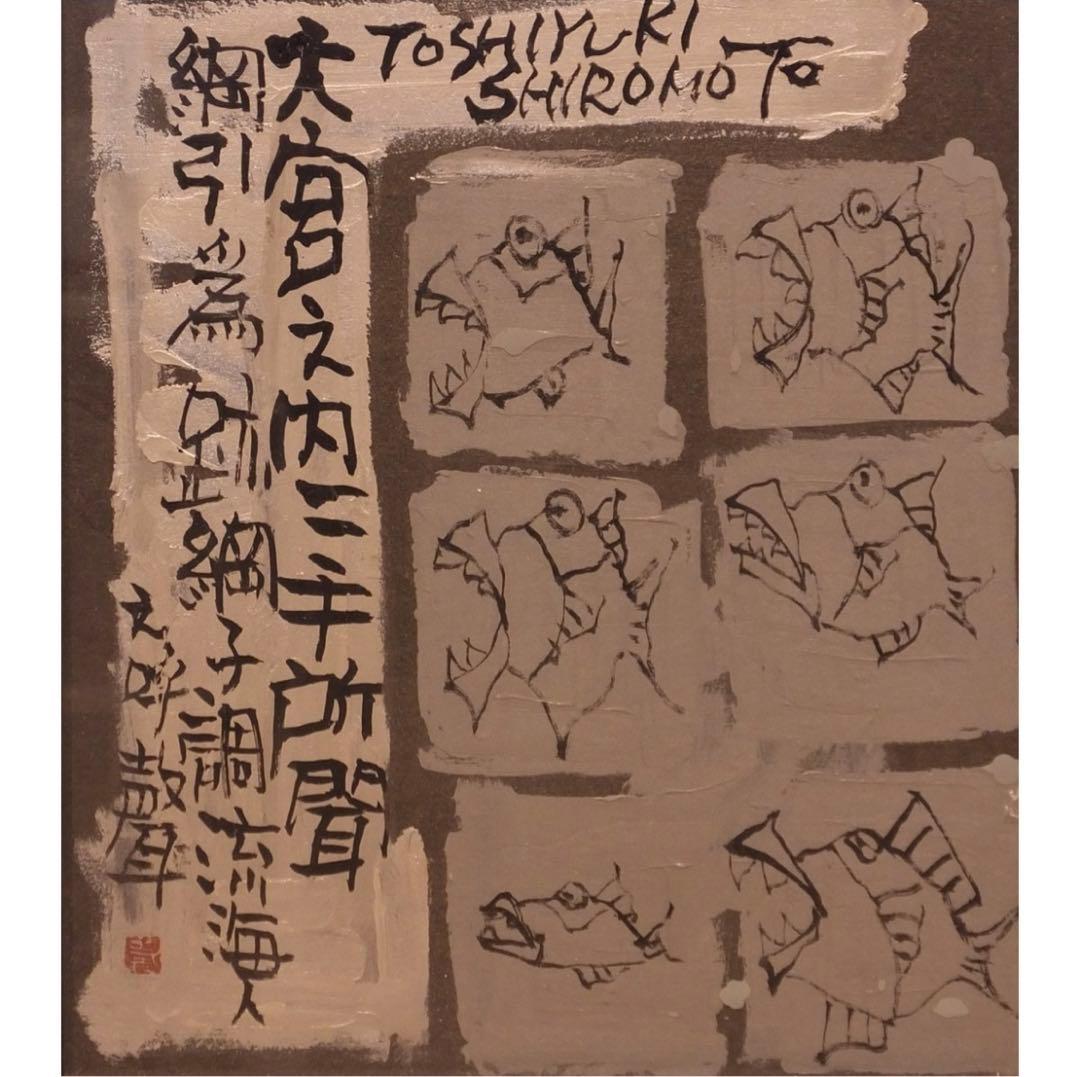 TOSHIYUKI
SHIROMOTO
大宮之内二手所聞
網引爲跡網子調流海人
之呼聲